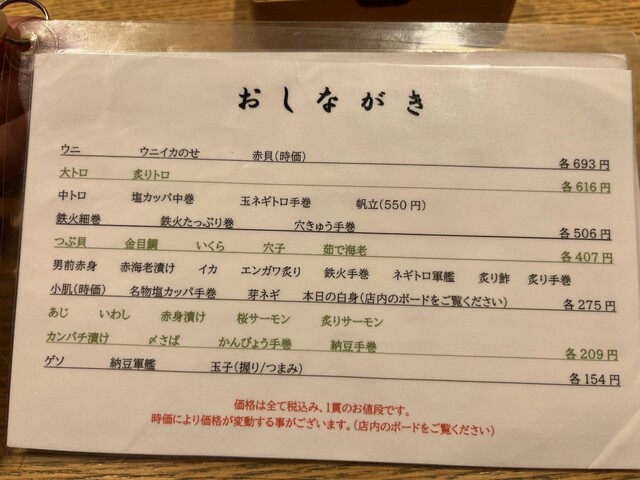 おしながき
ウニ ウニイカのせ 赤貝(時価) 各693円
大トロ 炙りトロ 各616円
中トロ 塩カッパ中巻 玉ネギトロ手巻 帆立(550円)
鉄火細巻 鉄火たっぷり巻 穴きゅう手巻 各506円
つぶ貝 金目鯛 いくら 穴子 茹で海老 各407円
男前赤身 赤海老漬け イカ エンガワ炙り 鉄火手巻 ネギトロ軍艦 炙り鮓 炙り手巻
小肌(時価) 名物塩カッパ手巻 芽ネギ 本日の白身(店内のボードをご覧ください) 各275円
あじ いわし 赤身漬け 桜サーモン 炙りサーモン
カンパチ漬け 〆さば かんぴょう手巻 納豆手巻 各209円
ゲソ 納豆軍艦 玉子(握り/つまみ) 各154円
価格は全て税込み、1貫のお値段です。
時価により価格が変動する事がございます。(店内のボードをご覧ください)